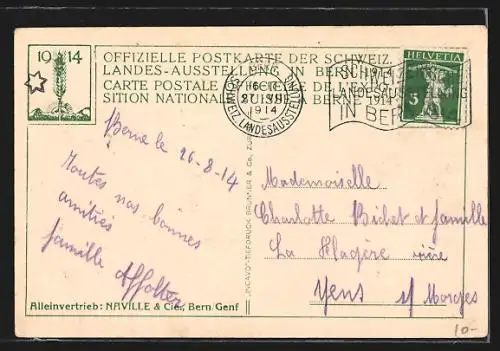 1914
OFFIZIELLE POSTKARTE DER SCHWEIZ.
LANDES-AUSSTELLUNG IN BERN 1914
CARTE POSTALE OFFICIELLE DE L'EXPO-
SITION NATIONALE SUISSE A BERNE 1914
BERN
SCHWEIZ. LANDESAUSSTELLUNG
1914
SCHWEIZ.
LANDESAUSSTELLUNG
IN BERN
HELVETIA
5
Berne le 26-8-14
Toutes nos bonnes
amitiés
famille Affolter
Mademoiselle
Charlotte Bichet et famille
La
Yens s/ Morges
Alleinvertrieb: NAVILLE & Cie, Bern/Genf
"INCAVO"-TIEFDRUCK BRUNNER & Co, ZÜRICH
10-